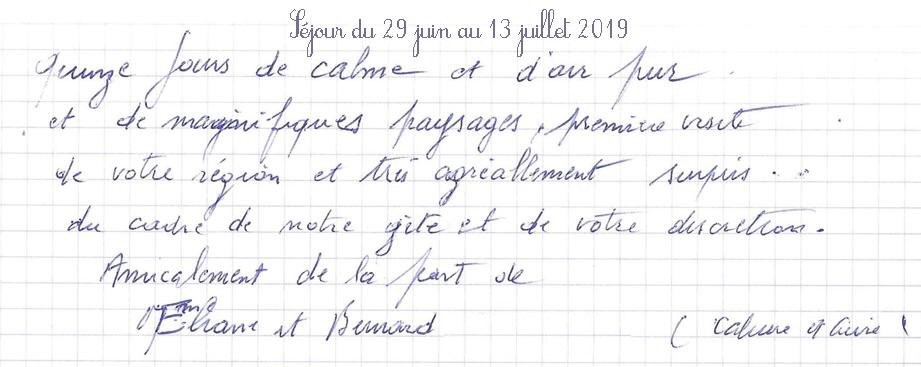 Séjour du 29 juin au 13 juillet 2019
Quinze Jours de calme et d'air pur.
et de magnifiques paysages, première visite
de votre région et très agréallement surpris...
du cadre de notre gîte et de votre discretion.
Amicalement de la part de
Eliane et Bernard ( et Loire (